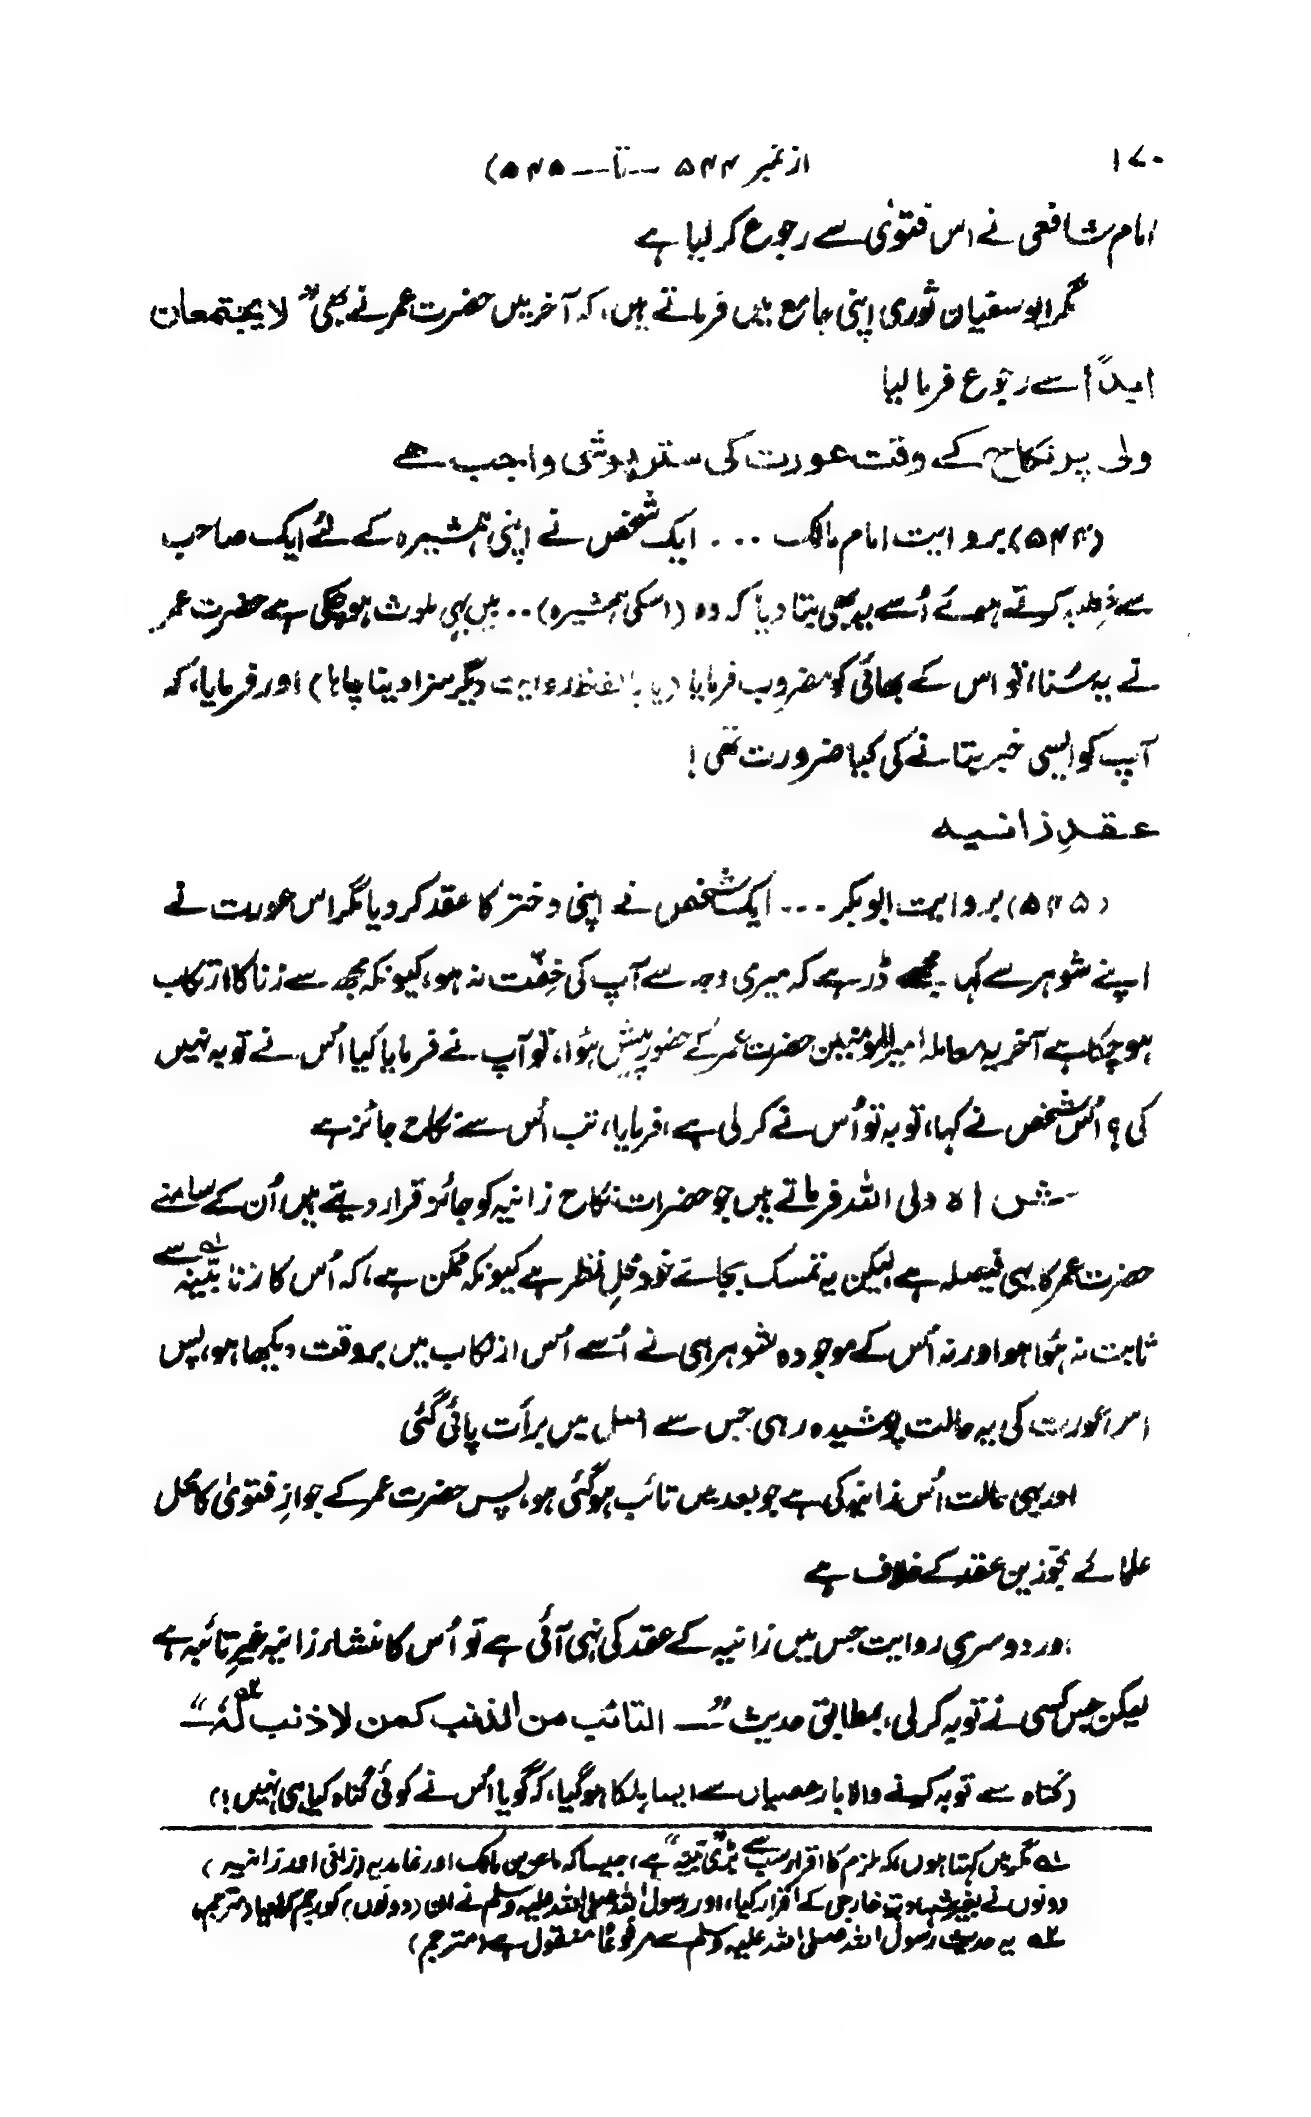 ۱۷۰
از نمبر ۵۴۴ -- تا -- ۵۴۵)
امام شافعی نے اس فتویٰ سے رجوع کر لیا ہے
مگر ابو سفیان ثوری اپنی جامع میں فرماتے ہیں، کہ آخر میں حضرت عمر نے بھی "لا یجتمعان
ابداً" سے رجوع فرما لیا
ولی پر نکاح کے وقت عورت کی ستر پوشی واجب ہے
(۵۴۴) بروایت امام مالک ... ایک شخص نے اپنی ہمشیرہ کے لئے ایک صاحب
سے خطبہ کرتے ہوئے اُسے یہ بھی بتا دیا کہ وہ (اسکی ہمشیرہ) .. میں بھی ملوث ہو چکی ہے حضرت عمر
نے یہ سُنا، تو اس کے بھائی کو مضروب فرمایا (یا بالفظ روایت دیگر سزا دینا چاہا) اور فرمایا، کہ
آپ کو ایسی خبر بتانے کی کیا ضرورت تھی!
عقدِ زانیہ
(۵۴۵) بروایت ابو بکر ... ایک شخص نے اپنی دختر کا عقد کر دیا مگر اس عورت نے
اپنے شوہر سے کہا مجھے ڈر ہے کہ میری وجہ سے آپ کی خِفّت نہ ہو، کیونکہ مجھ سے زنا کا ارتکاب
ہو چکا ہے آخر یہ معاملہ امیر المومنین حضرت عمر کے حضور پیش ہُوا، تو آپ نے فرمایا کیا اُس نے توبہ نہیں
کی؟ اُس شخص نے کہا، توبہ تو اُس نے کر لی ہے، فرمایا، تب اُس سے نکاح جائز ہے
شاہ ولی اللہ فرماتے ہیں جو حضرات نکاح زانیہ کو جائز قرار دیتے ہیں اُن کے سامنے
حضرت عمر کا یہی فیصلہ ہے، لیکن یہ تمسک بجائے خود محلِ نظر ہے کیونکہ ممکن ہے، کہ اُس کا زنا بیّنہ ۱ سے
ثابت نہ ہُوا ہو اور نہ اُس کے موجودہ شوہر ہی نے اُسے اُس ارتکاب میں بر وقت دیکھا ہو، پس
اس عورت کی یہ حالت پوشیدہ رہی جس سے اصل میں برأت پائی گئی
اور یہی حالت اُس زانیہ کی ہے جو بعد میں تائب ہو گئی ہو، پس حضرت عمر کے جوازِ فتویٰ کا محل
علمائے مجوّزین عقد کے خلاف ہے
اور دوسری روایت جس میں زانیہ کے عقد کی نہی آئی ہے تو اُس کا منشاء زانیہ غیرِ تائبہ ہے
لیکن جس کسی نے توبہ کر لی، بمطابق حدیث "— التائب من الذنب کمن لا ذنب لہٗ ۲ —"
(گناہ سے توبہ کرنے والا بار عصیاں سے ایسا ہلکا ہو گیا، کہ گویا اُس نے کوئی گناہ کیا ہی نہیں!)
۱ مگر میں کہتا ہوں کہ ملزم کا اقرار سب سے بڑی "بیّنہ" ہے، جیسا کہ ماعز بن مالک اور غامدیہ (زانی اور زانیہ)
دونوں نے بغیر شہادتِ خارجی کے اقرار کیا، اور رسول اللہ صلی اللہ علیہ وسلم نے ان (دونوں) کو رجم کرا دیا (مترجم)
۲ یہ حدیث رسول اللہ صلی اللہ علیہ وسلم سے مرفوعاً منقول ہے (مترجم)